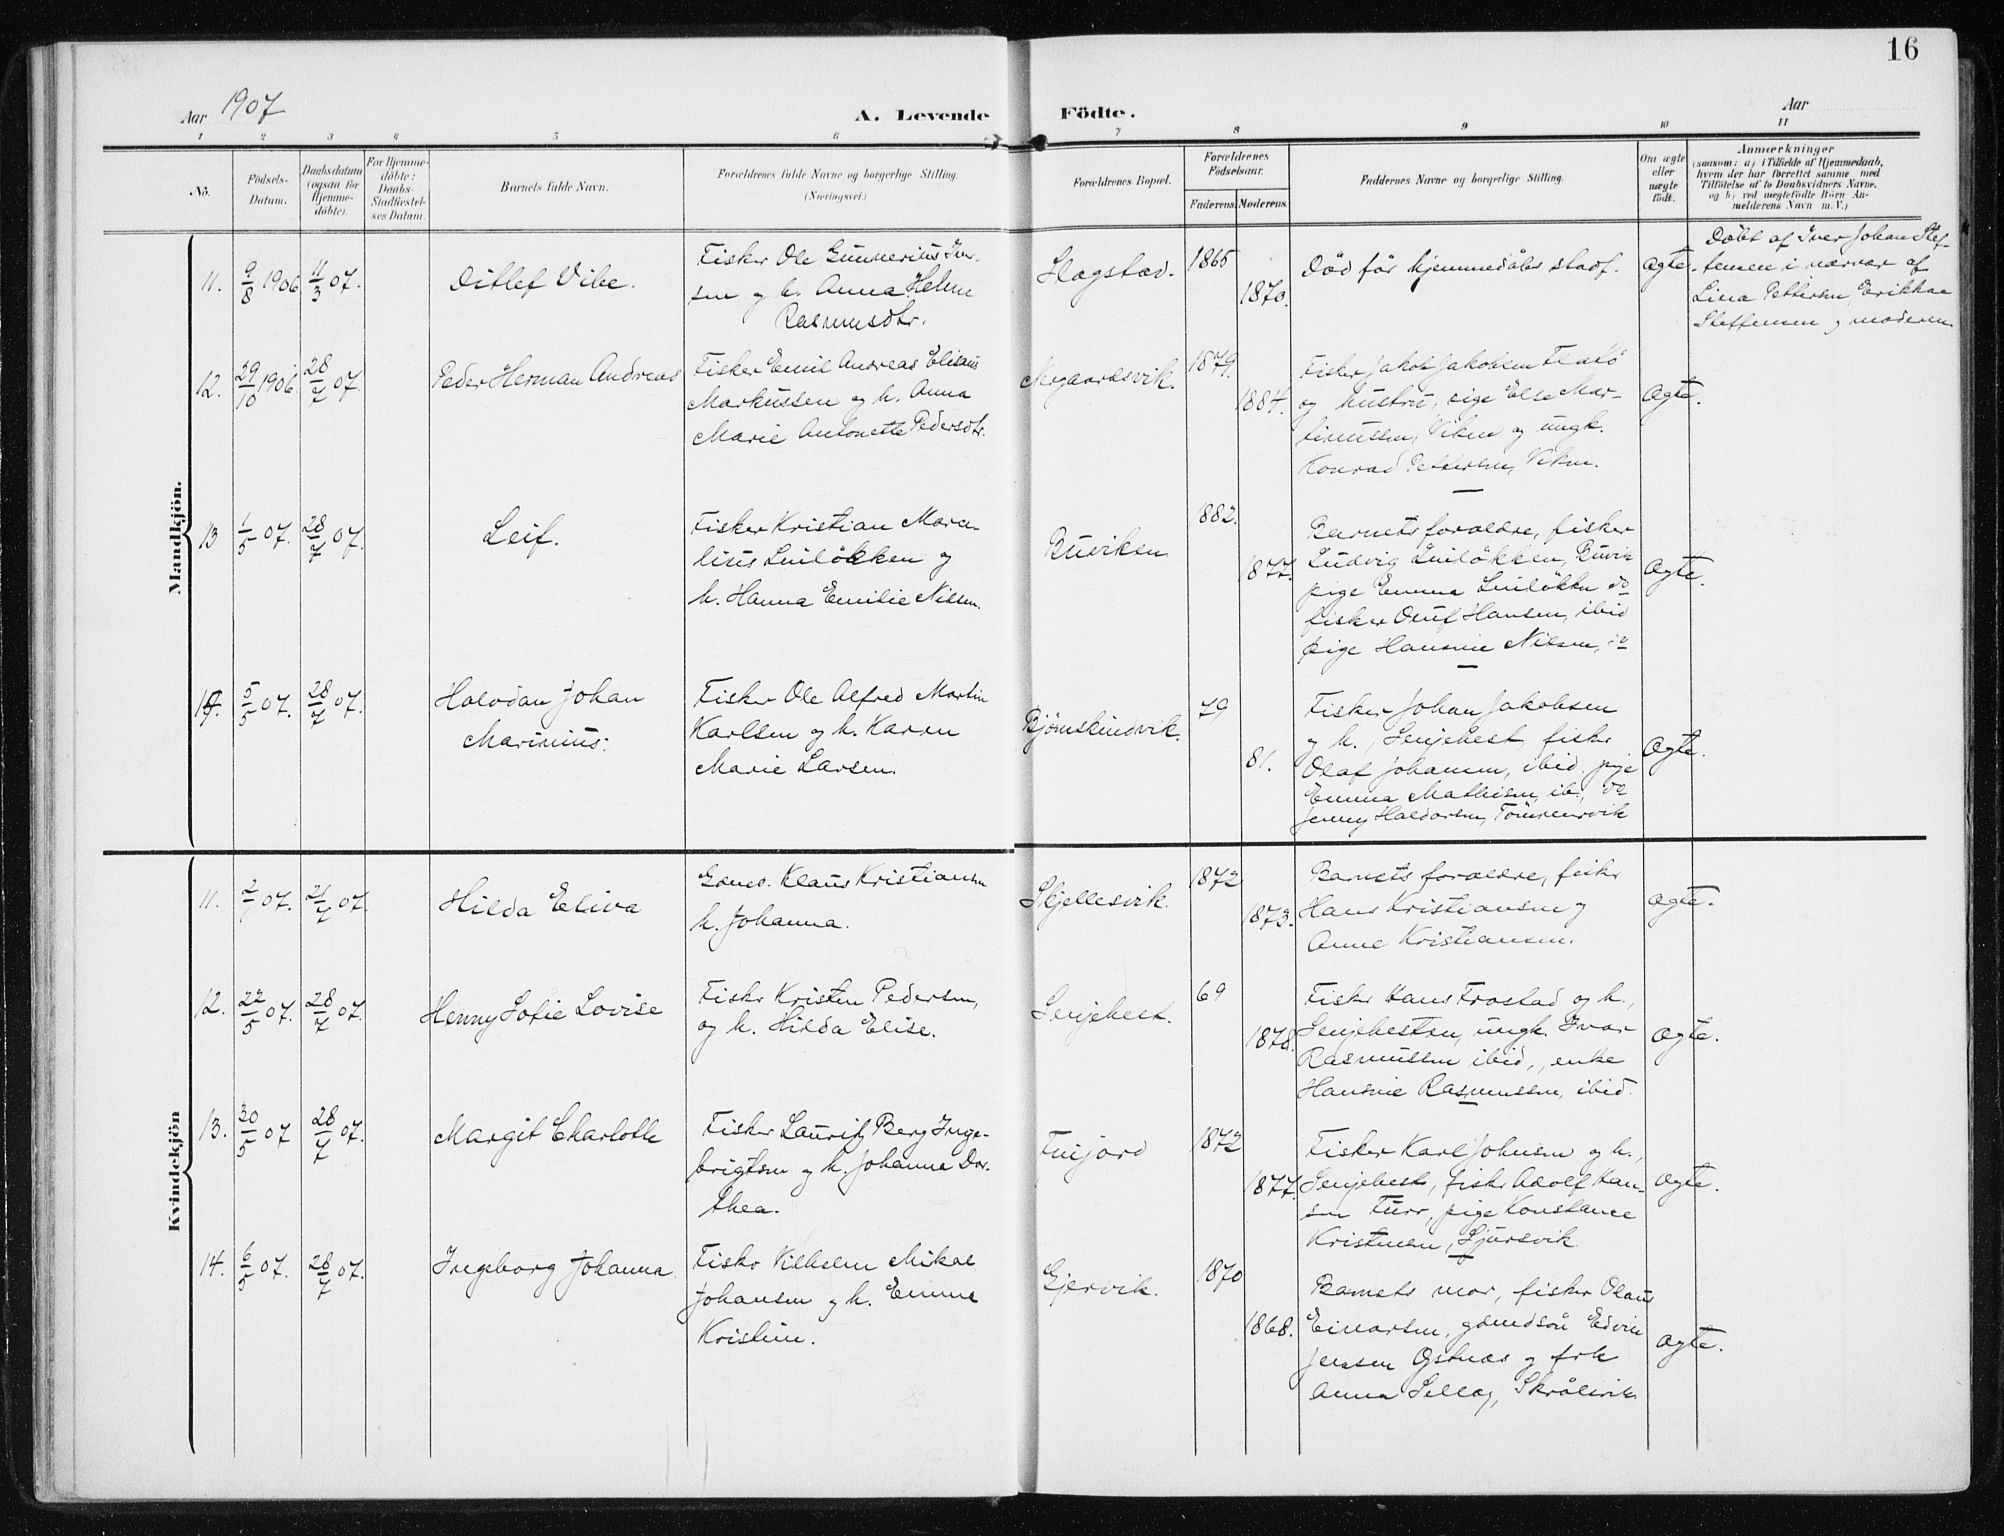 16
Aar 1907
A. Levende Födte.
Aar
1 2 3 4 5 6 7 8 9 10 11
No.
Födsels-
Datum.
Daabsdatum
(ogsaa for
Hjemme-
döbte).
For Hjemme-
döbte:
Daabs-
Stadfæstel-
ses Datum.
Barnets fulde Navn.
Forældrenes fulde Navne og borgerlige Stilling.
(Næringsvei.)
Forældrenes Bopæl.
Forældrenes
Födselsaar.
Faderens. Moderens.
Faddernes Navne og borgerlige Stilling.
Om ægte
eller
uægte
födt.
Anmærkninger
(saasom: a) i Tilfælde af Hjemmedaab,
hvem der har forrettet samme med
Tilföielse af to Daabsvidners Navne,
og b) ved uægtefödte Börn An-
melderens Navn m. V.)
Mandkjön.
11. 9/8 1906 11/3 07.
Ditlef Vibe.
Fisker Ole Gunnerius Iver-
sen og h. Anna Helene
Rasmusdtr.
1865
1870.
Død før hjemmedåben stadf.
ægte.
Döbt af Iver Johan Stef-
fensen i nærvær af
Lina Pettersen, Erikka
Steffensen og moderen.
12. 29/10 1906. 28/7 07.
Peder Herman Andreas
Fisker Emil Andreas Elisæus
Markussen og h. Anna
Marie Antonette Pedersdtr.
1879.
1884.
Fisker Jakob Jakobsen Flatö
og hustru, pige Else Mar-
tinussen, Viken og ungk.
Konrad Pettersen, Viken.
ægte.
13 1/5 07. 28/7 07.
Leif.
Fisker Kristian Marce-
lius Luiløkken og
h. Hanna Emilie Nilsen.
Buviken
882.
1877.
Barnets forældre, fisker
Ludvig Luiløkken, Buvik
pige Emma Luiløkken do
fisker Oluf Hansen, ibid
pige Hansine Nilsen, do
ægte.
14. 5/5 07. 28/7 07.
Halvdan Johan
Marinius.
Fisker Ole Alfred Martin
Karlsen og h. Karen
Marie Larsen.
Bjørnskindvik.
79
81.
Fisker Johan Jakobsen
og h., Senjehest, fisker
Olaf Johansen, ibid. pige
Emma Mathisen, ib., do
Jenny Haldorsen, Tömmervik
ægte.
Kvindekjön
11. 2/1 07. 21/7 07.
Hilda Eliva
Klaus Kristiansen
h. Johanna.
Skjellesvik.
1872
1873.
Barnets forældre, fisker
Hans Kristiansen og
Anne Kristiansen.
ægte.
12. 22/5 07. 28/7 07.
Henny Sofie Lovise
Fisker Kristen Pedersen,
og h. Hilda Elise.
Senjehest.
69
1878.
Fisker Hans Frostad og h.,
Senjehesten, ungk. Ivar
Rasmussen ibid., enke
Hansine Rasmussen, ibid.
ægte.
13. 30/5 07 28/7 07.
Margit Charlotte
Fisker Lauritz Berg Inge-
brigtsen og h. Johanna Dor-
thea.
Finjord
1872
1877.
Fisker Karl Johnsen og h.,
Senjehest, fisker Adolf Han-
sen Furr, pige Konstance
Kristensen, Sjursvik.
ægte.
14. 6/5 07. 28/7 07.
Ingeborg Johanna
Fisker Vilhelm Mikal
Johansen og h. Emma
Kristine.
Gjervik.
1870
1868.
Barnets mor, fisker Olaus
Einarsen, gdmdsön Edvin
Jensen Östnæs og frk
Anna Selbog, Skrålivik.
ægte.